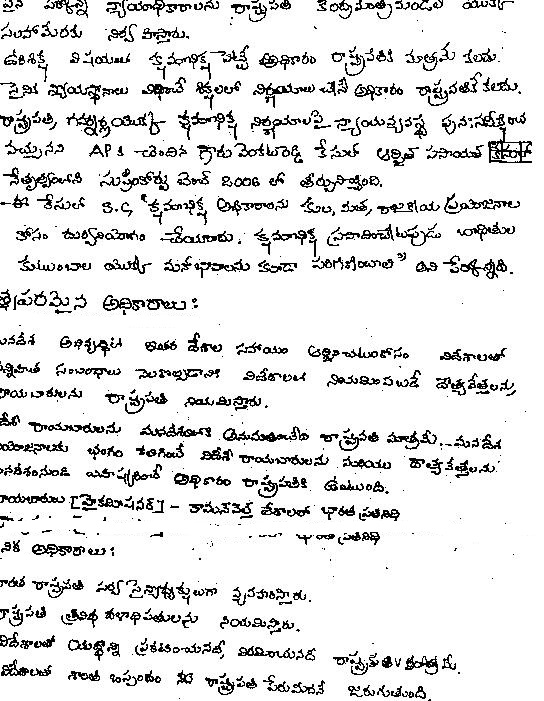 పైన పేర్కొన్న న్యాయాధికారాలను రాష్ట్రపతి కేంద్రమంత్రిమండలి యొక్క
సలహామేరకు నిర్వహిస్తారు.
ఉరిశిక్ష విషయంలో క్షమాభిక్ష పెట్టే అధికారం రాష్ట్రపతికి మాత్రమే కలదు.
సైనిక న్యాయస్థానాలు విధించే శిక్షలలో నిర్ణయాలు చేసే అధికారం రాష్ట్రపతికే కలదు.
రాష్ట్రపతి, గవర్నర్ల యొక్క క్షమాభిక్ష నిర్ణయాలపై న్యాయవ్యవస్థ పునఃసమీక్షించ
వచ్చునని APకి చెందిన గౌరు వెంకటరెడ్డి కేసులో అర్జిత్ పసాయత్
నేతృత్వంలోని సుప్రీంకోర్టు బెంచ్ 2006 లో తీర్పునిచ్చింది.
- ఈ కేసులో S.C, "క్షమాభిక్ష అధికారాలను కుల, మత, రాజకీయ ప్రయోజనాల
కోసం దుర్వినియోగం చేయరాదు. క్షమాభిక్ష ప్రసాదించేటప్పుడు బాధితుల
కుటుంబాల యొక్క మనోభావాలను కూడా పరిగణించాలి" అని పేర్కొన్నది.
త్యపరమైన అధికారాలు:
మనదేశ అభివృద్ధికి ఇతర దేశాల సహాయం అర్థించుటకోసం విదేశాలతో
సంబంధాలు నెలకొల్పడానికి విదేశాలకు నియమింపబడే దౌత్యవేత్తలను,
రాయబారులను రాష్ట్రపతి నియమిస్తారు.
దేశీ రాయబారులను మనదేశంలోకి అనుమతించేది రాష్ట్రపతి మాత్రమే. మనదేశ
యోజనాలకు భంగం కలిగించే విదేశీ రాయబారులను మరియు దౌత్యవేత్తలను
మనదేశంనుండి బహిష్కరించే అధికారం రాష్ట్రపతికి ఉంటుంది.
రాయబారులు [హైకమిషనర్] - కామన్వెల్త్ దేశాలలో భారత ప్రతినిధి
ప్రతినిధి
నిక అధికారాలు:
భారత రాష్ట్రపతి సర్వ సైన్యాధ్యక్షులుగా వ్యవహరిస్తారు.
రాష్ట్రపతి త్రివిధ దళాధిపతులను నియమిస్తారు.
విదేశాలతో యుద్ధాన్ని ప్రకటించునది, విరమించునది రాష్ట్రపతి మాత్రమే.
విదేశాలతో శాంతి ఒప్పందం రాష్ట్రపతి పేరుమీదనే జరుగుతుంది.